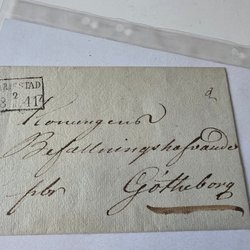 STAD
2
1841
Konungens
Befallningshafvande
Götheborg